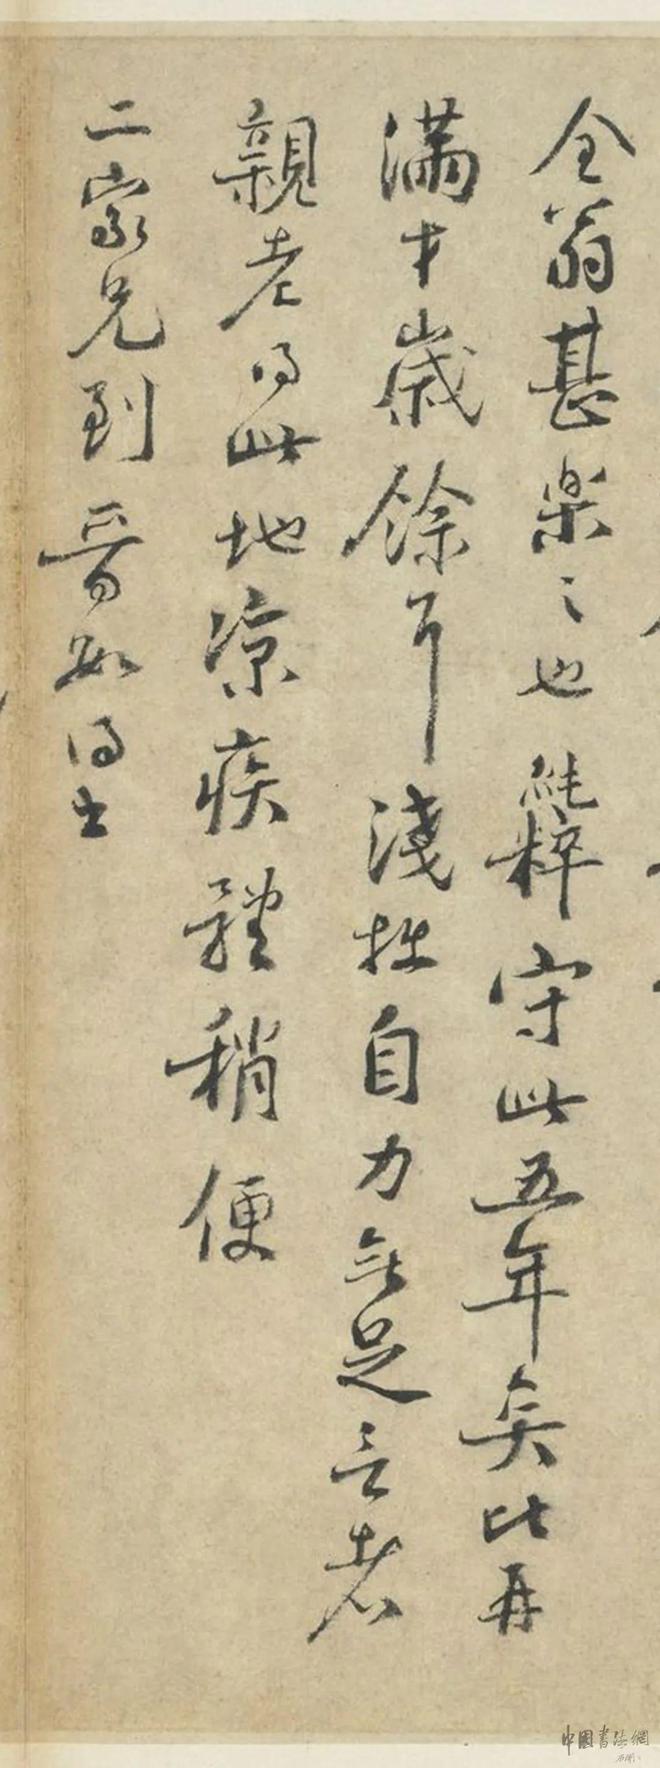 全翁甚樂之也純粹守此五年矣比再
滿才歲餘耳淺拙自力無足言者
親老得此地涼疾體稍便
二家兄到晉得
中國書法網